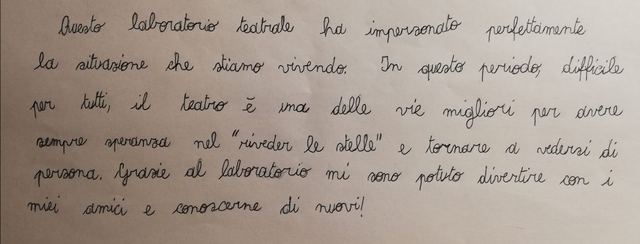 Questo laboratorio teatrale ha impersonato perfettamente
la situazione che stiamo vivendo. In questo periodo, difficile
per tutti, il teatro è una delle vie migliori per avere
sempre speranza nel "riveder le stelle" e tornare a vedersi di
persona. Grazie al laboratorio mi sono potuto divertire con i
miei amici e conoscerne di nuovi!